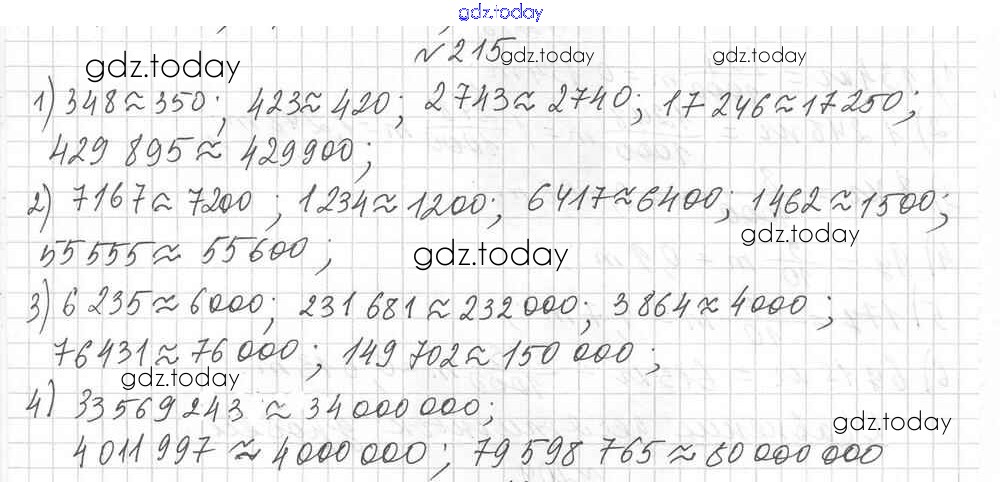 gdz.today
№ 215 gdz.today gdz.today
gdz.today
1) 348≈350; 423≈420; 2743≈2740; 17 246≈17250;
429 895≈ 429900;
2) 7167≈7200; 1234≈1200; 6417≈6400; 1462≈1500;
gdz.today
55 555≈ 55600;
gdz.today
3) 6 235≈6000; 231 681≈232 000; 3 864≈4000;
76431≈76 000; 149 702≈150 000;
gdz.today
4) 33 569 243 ≈ 34 000 000;
gdz.today
4 011 997 ≈ 4 000 000; 79 598 765≈80 000 000